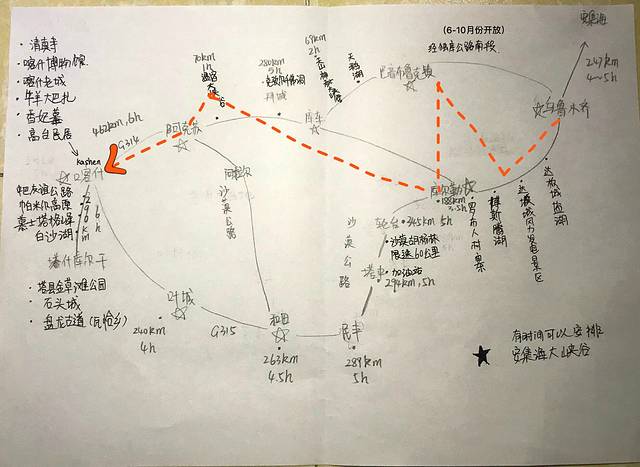 (6-10月份开放)
经独库公路南段
安集海
247km
4~5h
• 清真寺
• 喀什博物馆
• 喀什老城
• 牛羊大巴扎
• 香妃墓
• 高台民居
70km
1h
温宿大峡谷
280km
5h
• 克孜尔千佛洞
拜城
69km
2h
天山神秘大峡谷
大龙池
巴音布鲁克镇
乌鲁木齐
462km, 6h
G314
阿克苏
库车
kashen
喀什
中巴友谊公路
帕米尔高原
慕士塔格峰
白沙湖
290km
6h
塔什库尔干
• 塔县金草滩公园
• 石头城
• 盘龙古道(瓦恰乡)
阿拉尔
沙漠公路
库尔勒
• 188km
3.5h
• 罗布人村寨
• 博斯腾湖
• 达坂城风力发电景区
• 达坂城盐湖
沙漠公路
轮台 • 345km 5h
• 沙漠胡杨林
限速60公里
塔中 • 加油站
• 294km, 5h
叶城
240km
4h
G315
和田
• 263km
4.5h
民丰
• 289km
5h
有时间可以安排
安集海大峡谷